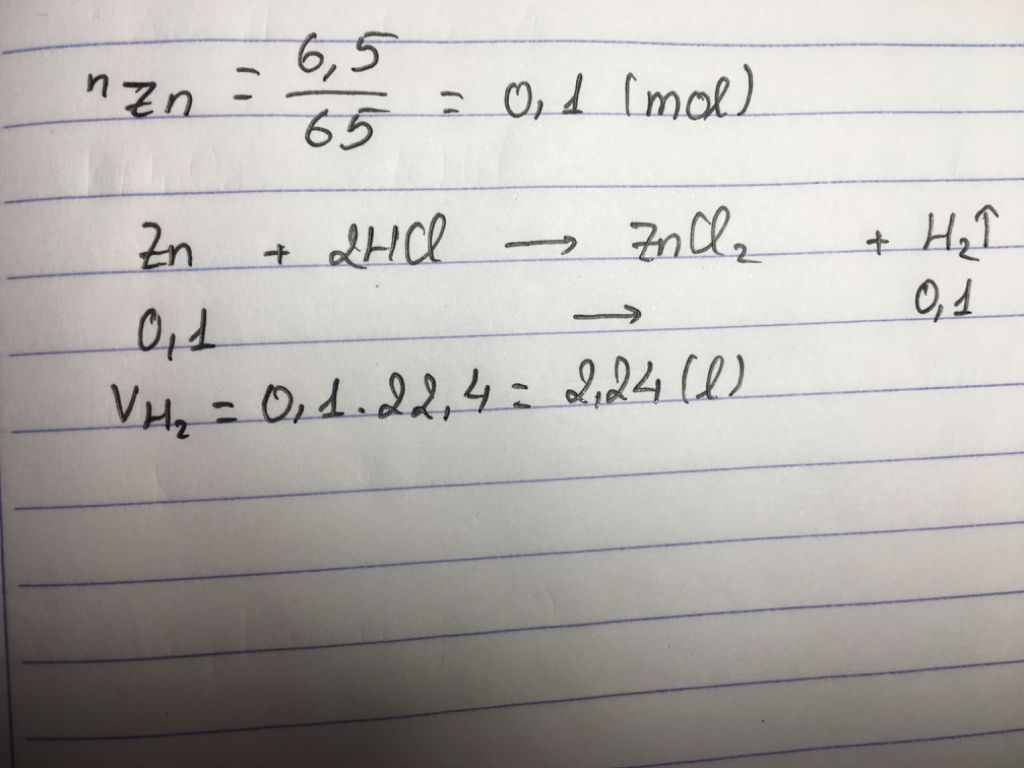 nZn = 6,5/65 = 0,1 (mol)
Zn + 2HCl → ZnCl₂ + H₂↑
0,1 → 0,1
VH₂ = 0,1.22,4 = 2,24 (l)